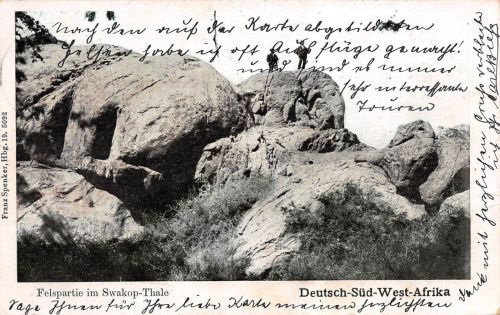 Nach den auf der Karte abgebildeten
Felsen habe ich oft Ausflüge gemacht!
und es immer
sehr interessante
Touren
Franz Spenker, Hbg. 19. 5092
Felspartie im Swakop-Thale
Deutsch-Süd-West-Afrika
Sage Ihnen für Ihre liebe Karte meinen herzlichsten
mit herzlichem Gruss